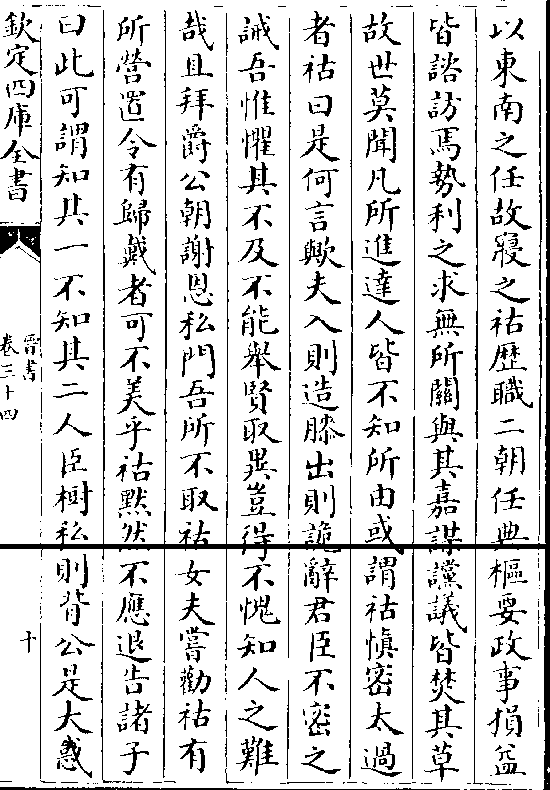 以東南之任故寢之祜歴職二朝任典樞要政事損益
皆諮訪焉勢利之求無所關與其嘉謀讜議皆焚其草
故世莫聞凡所進達人皆不知所由或謂祜慎密太過
者祜曰是何言歟夫入則造膝出則詭辭君臣不密之
誡吾惟懼其不及不能舉賢取異豈得不愧知人之難
哉且拜爵公朝謝恩私門吾所不取祜女夫嘗勸祜有
所營置令有歸戴者可不美乎祜黙然不應退告諸子
曰此可謂知其一不知其二人臣樹私則背公是大惑
欽定四庫全書
晉書
卷三十四
十